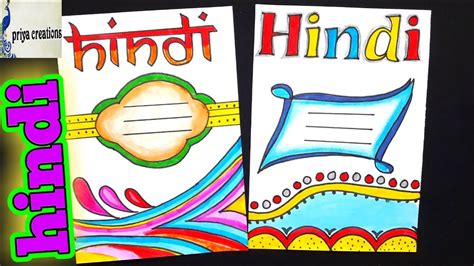 priya creations
hindi
hindi
Hindi